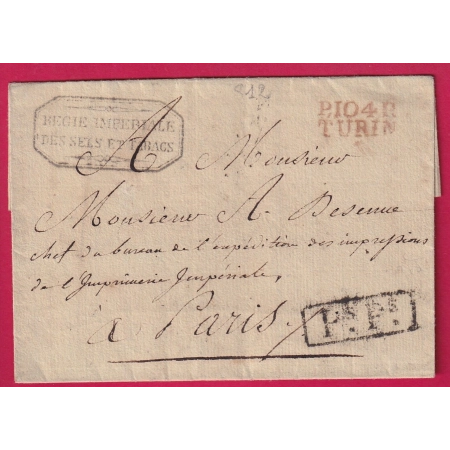 212
REGIE IMPERIALE
DES SELS ET TABAGS
P.104.P.
TURIN
A Monsieur
Monsieur A. Desenne
chef du bureau de l'expédition des impressions
de l'Imprimerie Impériale,
à Paris
Ps. Ps.